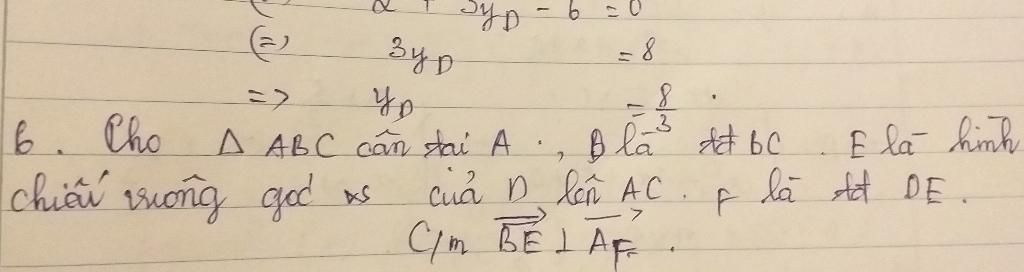 2 + 3yD - 6 = 0
(=) 3yD = 8
=> yD = 8/3 .
6. Cho Δ ABC cân tại A ., D là tđ BC . E là hình
chiếu vuông góc của D lên AC . F là tđ DE .
C/m BE ⊥ AF .